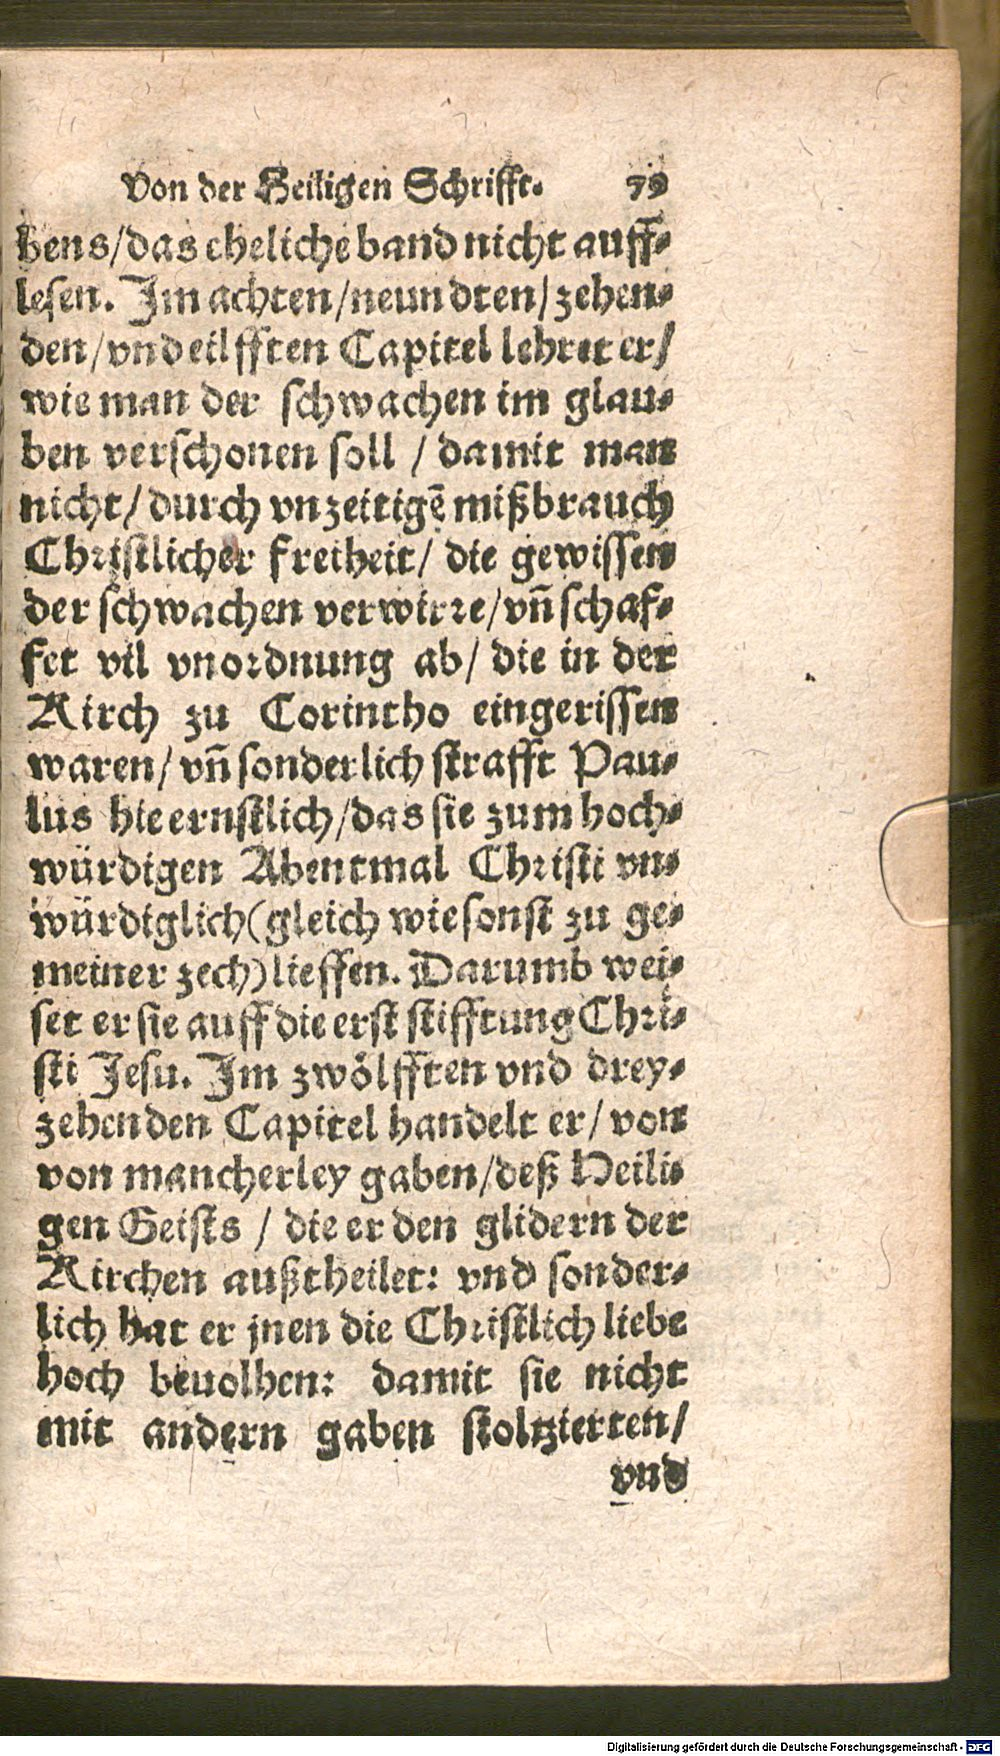 Von der Heiligen Schrifft. 79
bens/das eheliche band nicht auff⸗
lesen. Im achten/neundten/zehen⸗
den/vnd eilfften Capitel lehret er/
wie man der schwachen im glau⸗
ben verschonen soll / damit man
nicht/durch vnzeitigē mißbrauch
Christlicher freiheit/ die gewissen
der schwachen verwirre/vn̄ schaf⸗
fet vil vnordnung ab/ die in der
Kirch zu Corintho eingerissen
waren/vn̄ sonderlich strafft Pau⸗
lus hie ernstlich/das sie zum hoch⸗
würdigen Abentmal Christi vn⸗
würdiglich(gleich wie sonst zu ge⸗
meiner zech)lieffen. Darumb wei⸗
set er sie auff die erst stifftung Chri⸗
sti Jesu. Im zwölfften vnd drey⸗
zehenden Capitel handelt er/ von
von mancherley gaben/deß Heili⸗
gen Geists / die er den glidern der
Kirchen außtheilet: vnd sonder⸗
lich hat er jnen die Christlich liebe
hoch beuolhen: damit sie nicht
mit andern gaben stoltzierten/
vnd
Digitalisierung gefördert durch die Deutsche Forschungsgemeinschaft - DFG